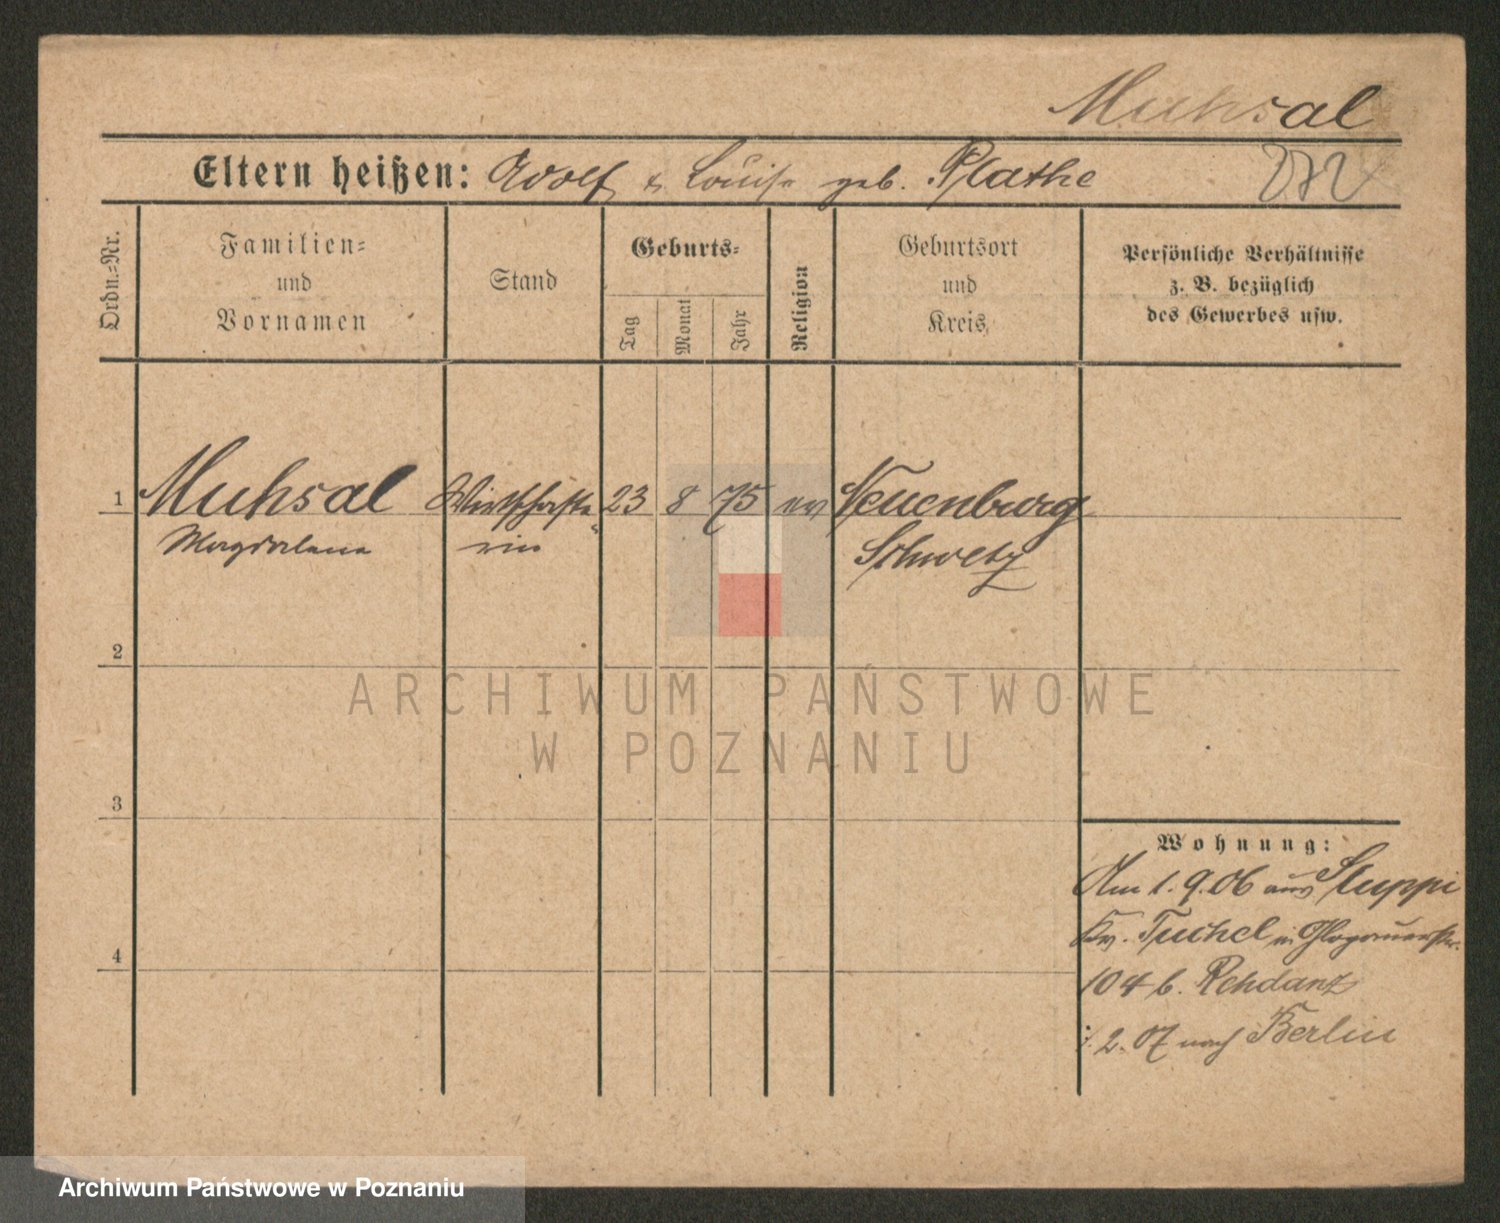 Muhsal
Eltern heißen: Adolf & Louise geb. Plathe
272
Ordn.-Nr.
Familien-
und
Vornamen
Stand
Geburts-
Tag
Monat
Jahr
Religion
Geburtsort
und
Kreis
Persönliche Verhältnisse
z. B. bezüglich
des Gewerbes usw.
1 Muhsal Wirtschafte- 23 8 75 ev Neuenburg
Magdalena rin Schwetz
2
ARCHIWUM PAŃSTWOWE
W POZNANIU
3
Wohnung:
Am 1. 9. 06 aus Sluppi
Kr. Tuchel in Glogauerstr.
4
104 b. Rehdanz
1. 2. 07 nach Berlin
Archiwum Państwowe w Poznaniu